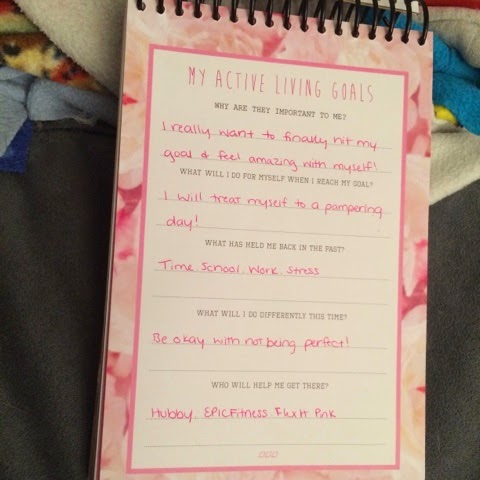 MY ACTIVE LIVING GOALS
WHY ARE THEY IMPORTANT TO ME?
I really want to finally hit my
goal & feel amazing with myself!
WHAT WILL I DO FOR MYSELF WHEN I REACH MY GOAL?
I will treat myself to a pampering
day!
WHAT HAS HELD ME BACK IN THE PAST?
Time. School. Work. Stress
WHAT WILL I DO DIFFERENTLY THIS TIME?
Be okay with not being perfect!
WHO WILL HELP ME GET THERE?
Hubby. EPICFitness